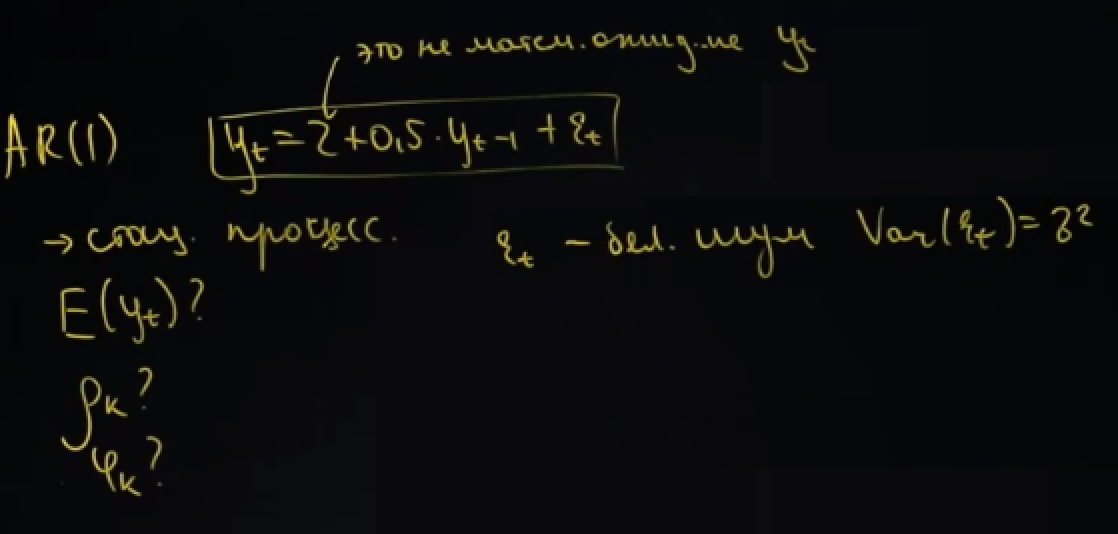 это не матем. ожид-ие yₜ
AR(1) yₜ = 2 + 0,5 · yₜ₋₁ + εₜ
→ стац. процесс.
εₜ – бел. шум Var(εₜ) = σ²
E(yₜ)?
ρₖ?
φₖ?